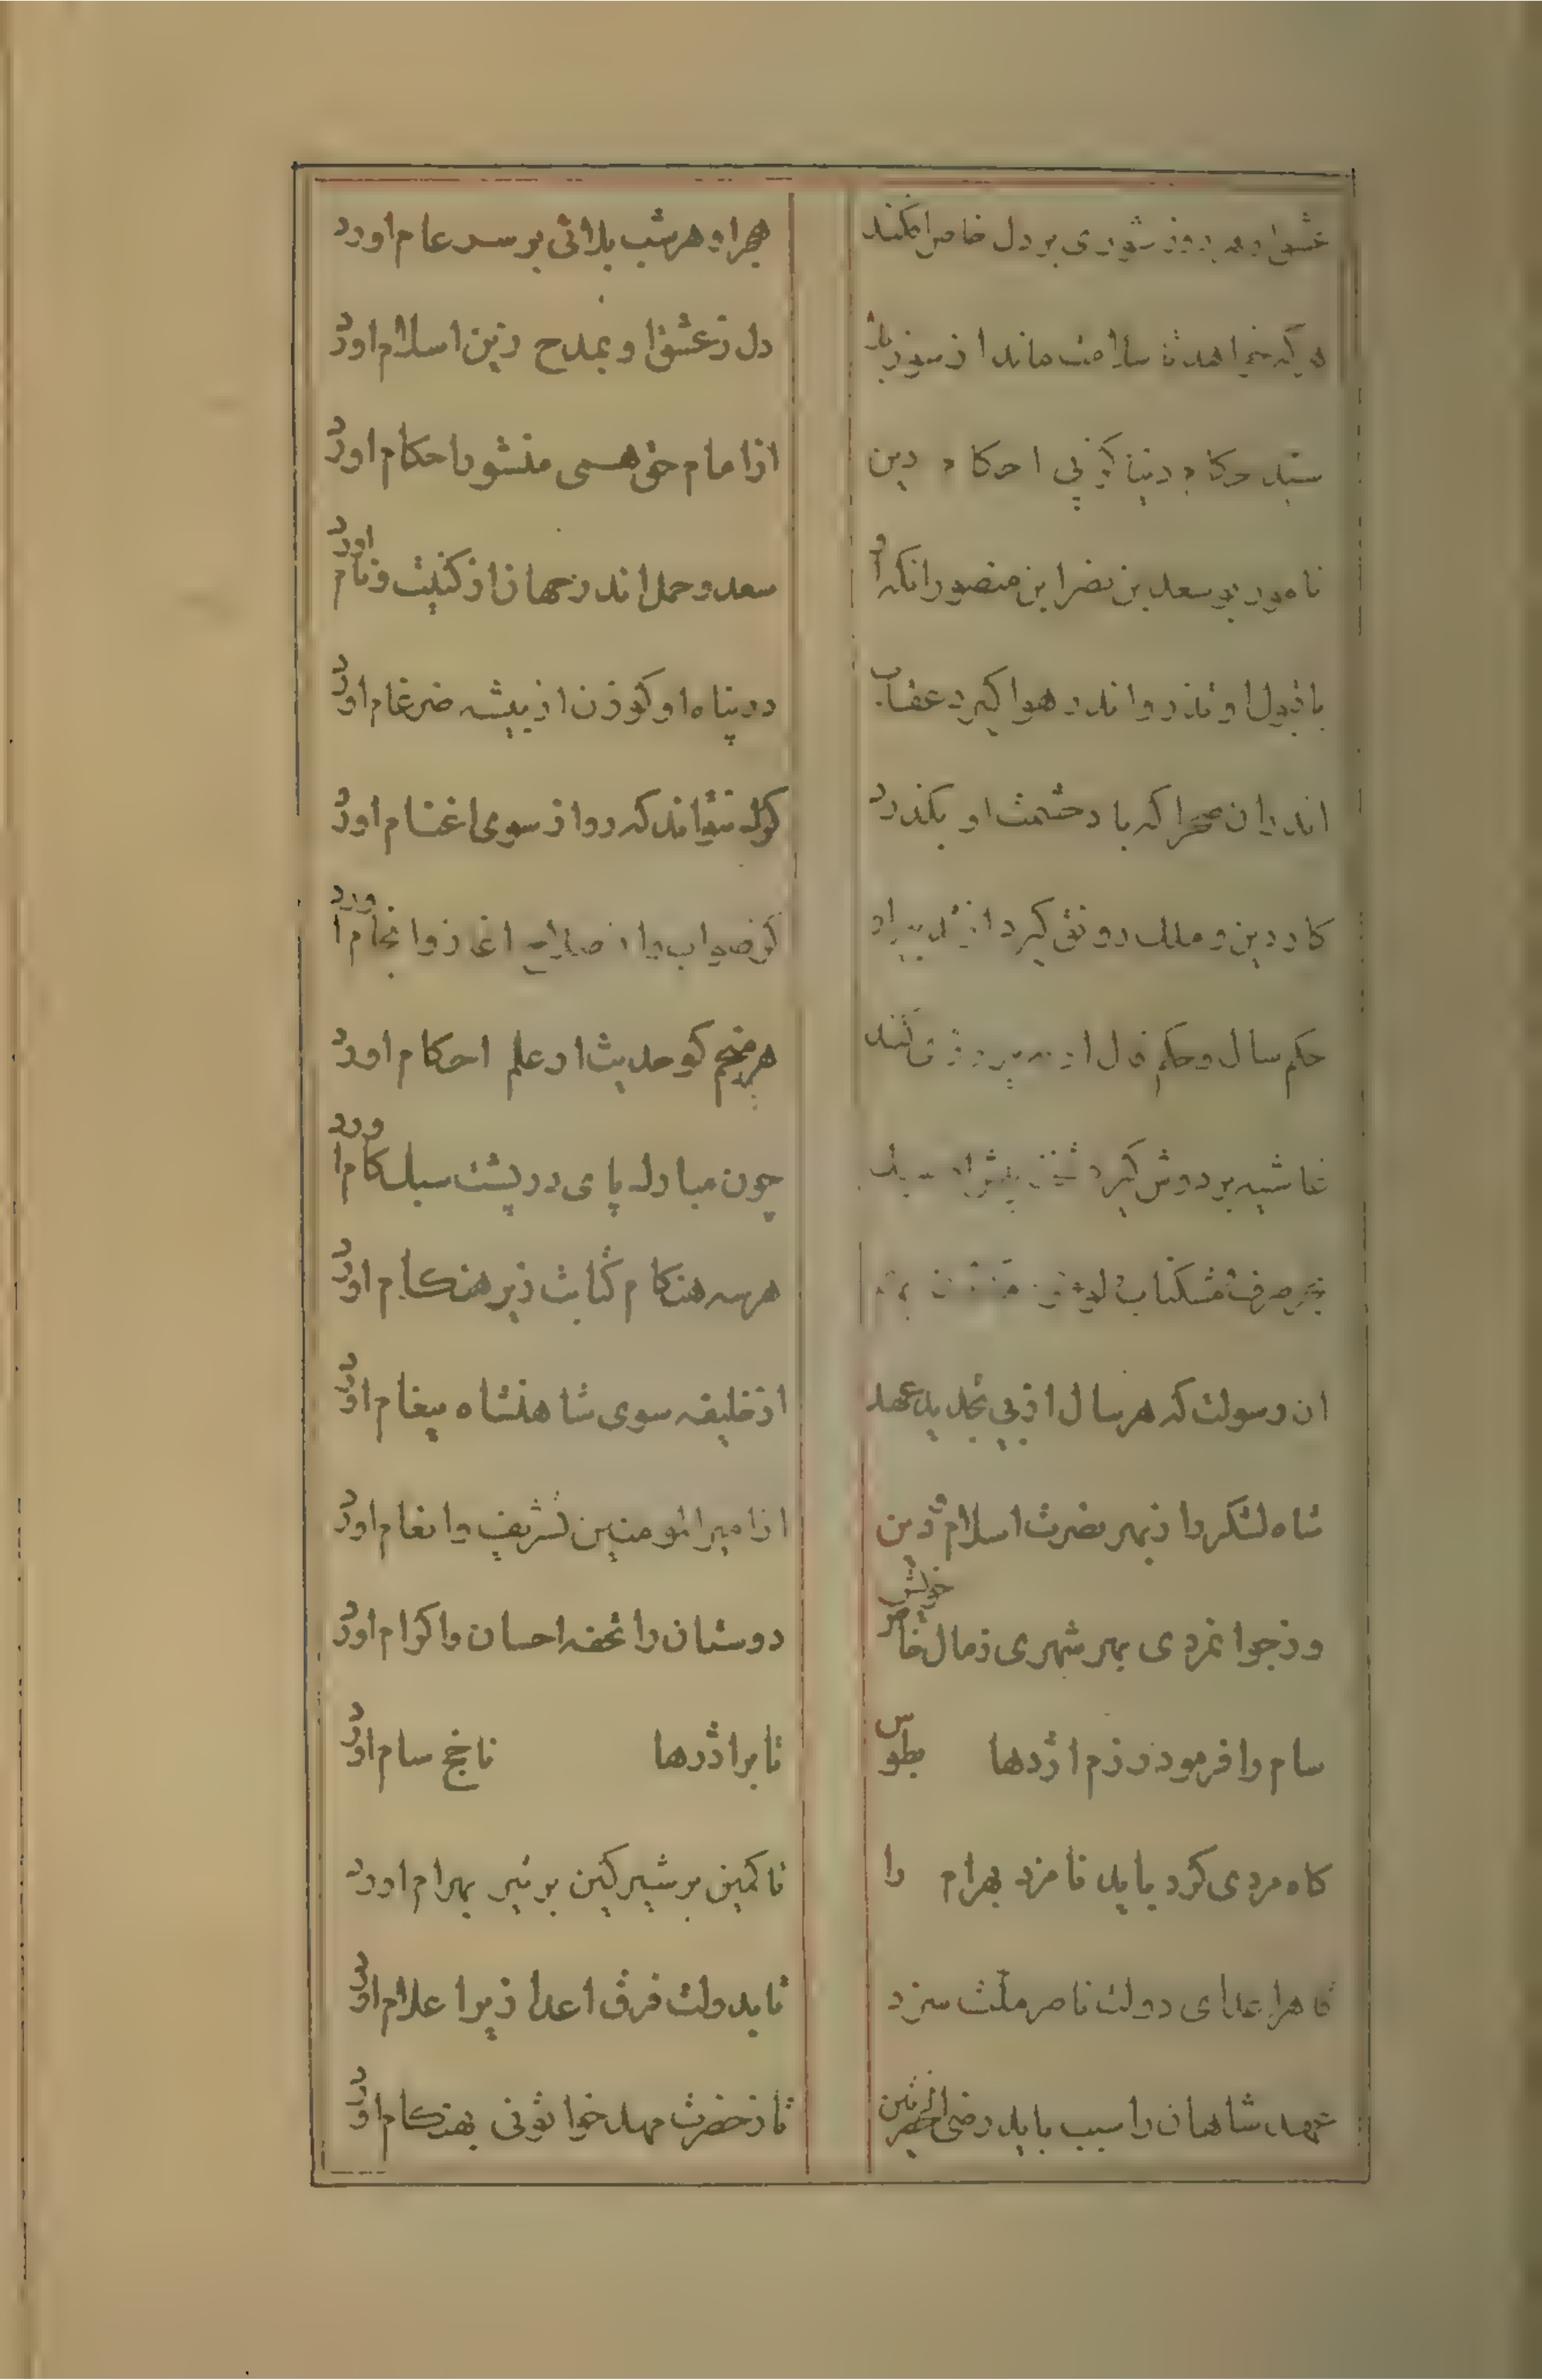 عشق او هر روز شوری بر دل خاص افکند
هجر او هر شب بلائی بر سر عام اورد
هر که خواهد تا سلامت ماند از سوز بلا
دل ز عشق او بمدح زین اسلام اورد
سید حکام دنیا کز پی احکام دین
از امام حق همی منشور احکام اورد
نامور بو سعد بن نصر ابن منصور انکه او
سعد و حمد اندر جهان از کنیت و نام اورد
با قبول او تذرو اندر هوا گیرد عقاب
در پناه او کوزن از بیشه ضرغام اورد
اندر ان صحرا که باد حشمت او بکذرد
کرک نتواند که رو از سوی اغنام اورد
کار دین و ملک رونق گیرد از تدبیر او
کز صواب و از صلاح اغاز و انجام اورد
حکم سال و حکم فال از
هر منجم کو حدیث از علم احکام اورد
غاشیه بر دوش گیرد
چون مبارک پای در پشت سبک کام اورد
هر سه هنکام کتابت زیر هنکام اورد
ان رسولت که هر سال از پی تجدید عهد
از خلیفه سوی شاهنشاه پیغام اورد
شاه لشکر را ز بهر نصرت اسلام و دین
از امیر المومنین تشریف و انعام اورد
وز جوانمردی بهر شهری ز مال خاص خویش
دوستان را تحفه احسان و اکرام اورد
سام را فرمود رزم اژدها بطوس
تا بر اژدرها ناخج سام اورد
کاه مردی کرد باید نامزد بهرام را
تا کمین بر شیر کین بر ببر بهرام اورد
قاهر اعدای دولت ناصر ملت سزد
تا بدولت فرق اعدا زیر اعلام اورد
عهد شاهان را سبب باید رضی
تا ز حضرت مهد خواتونی بهنکام اورد